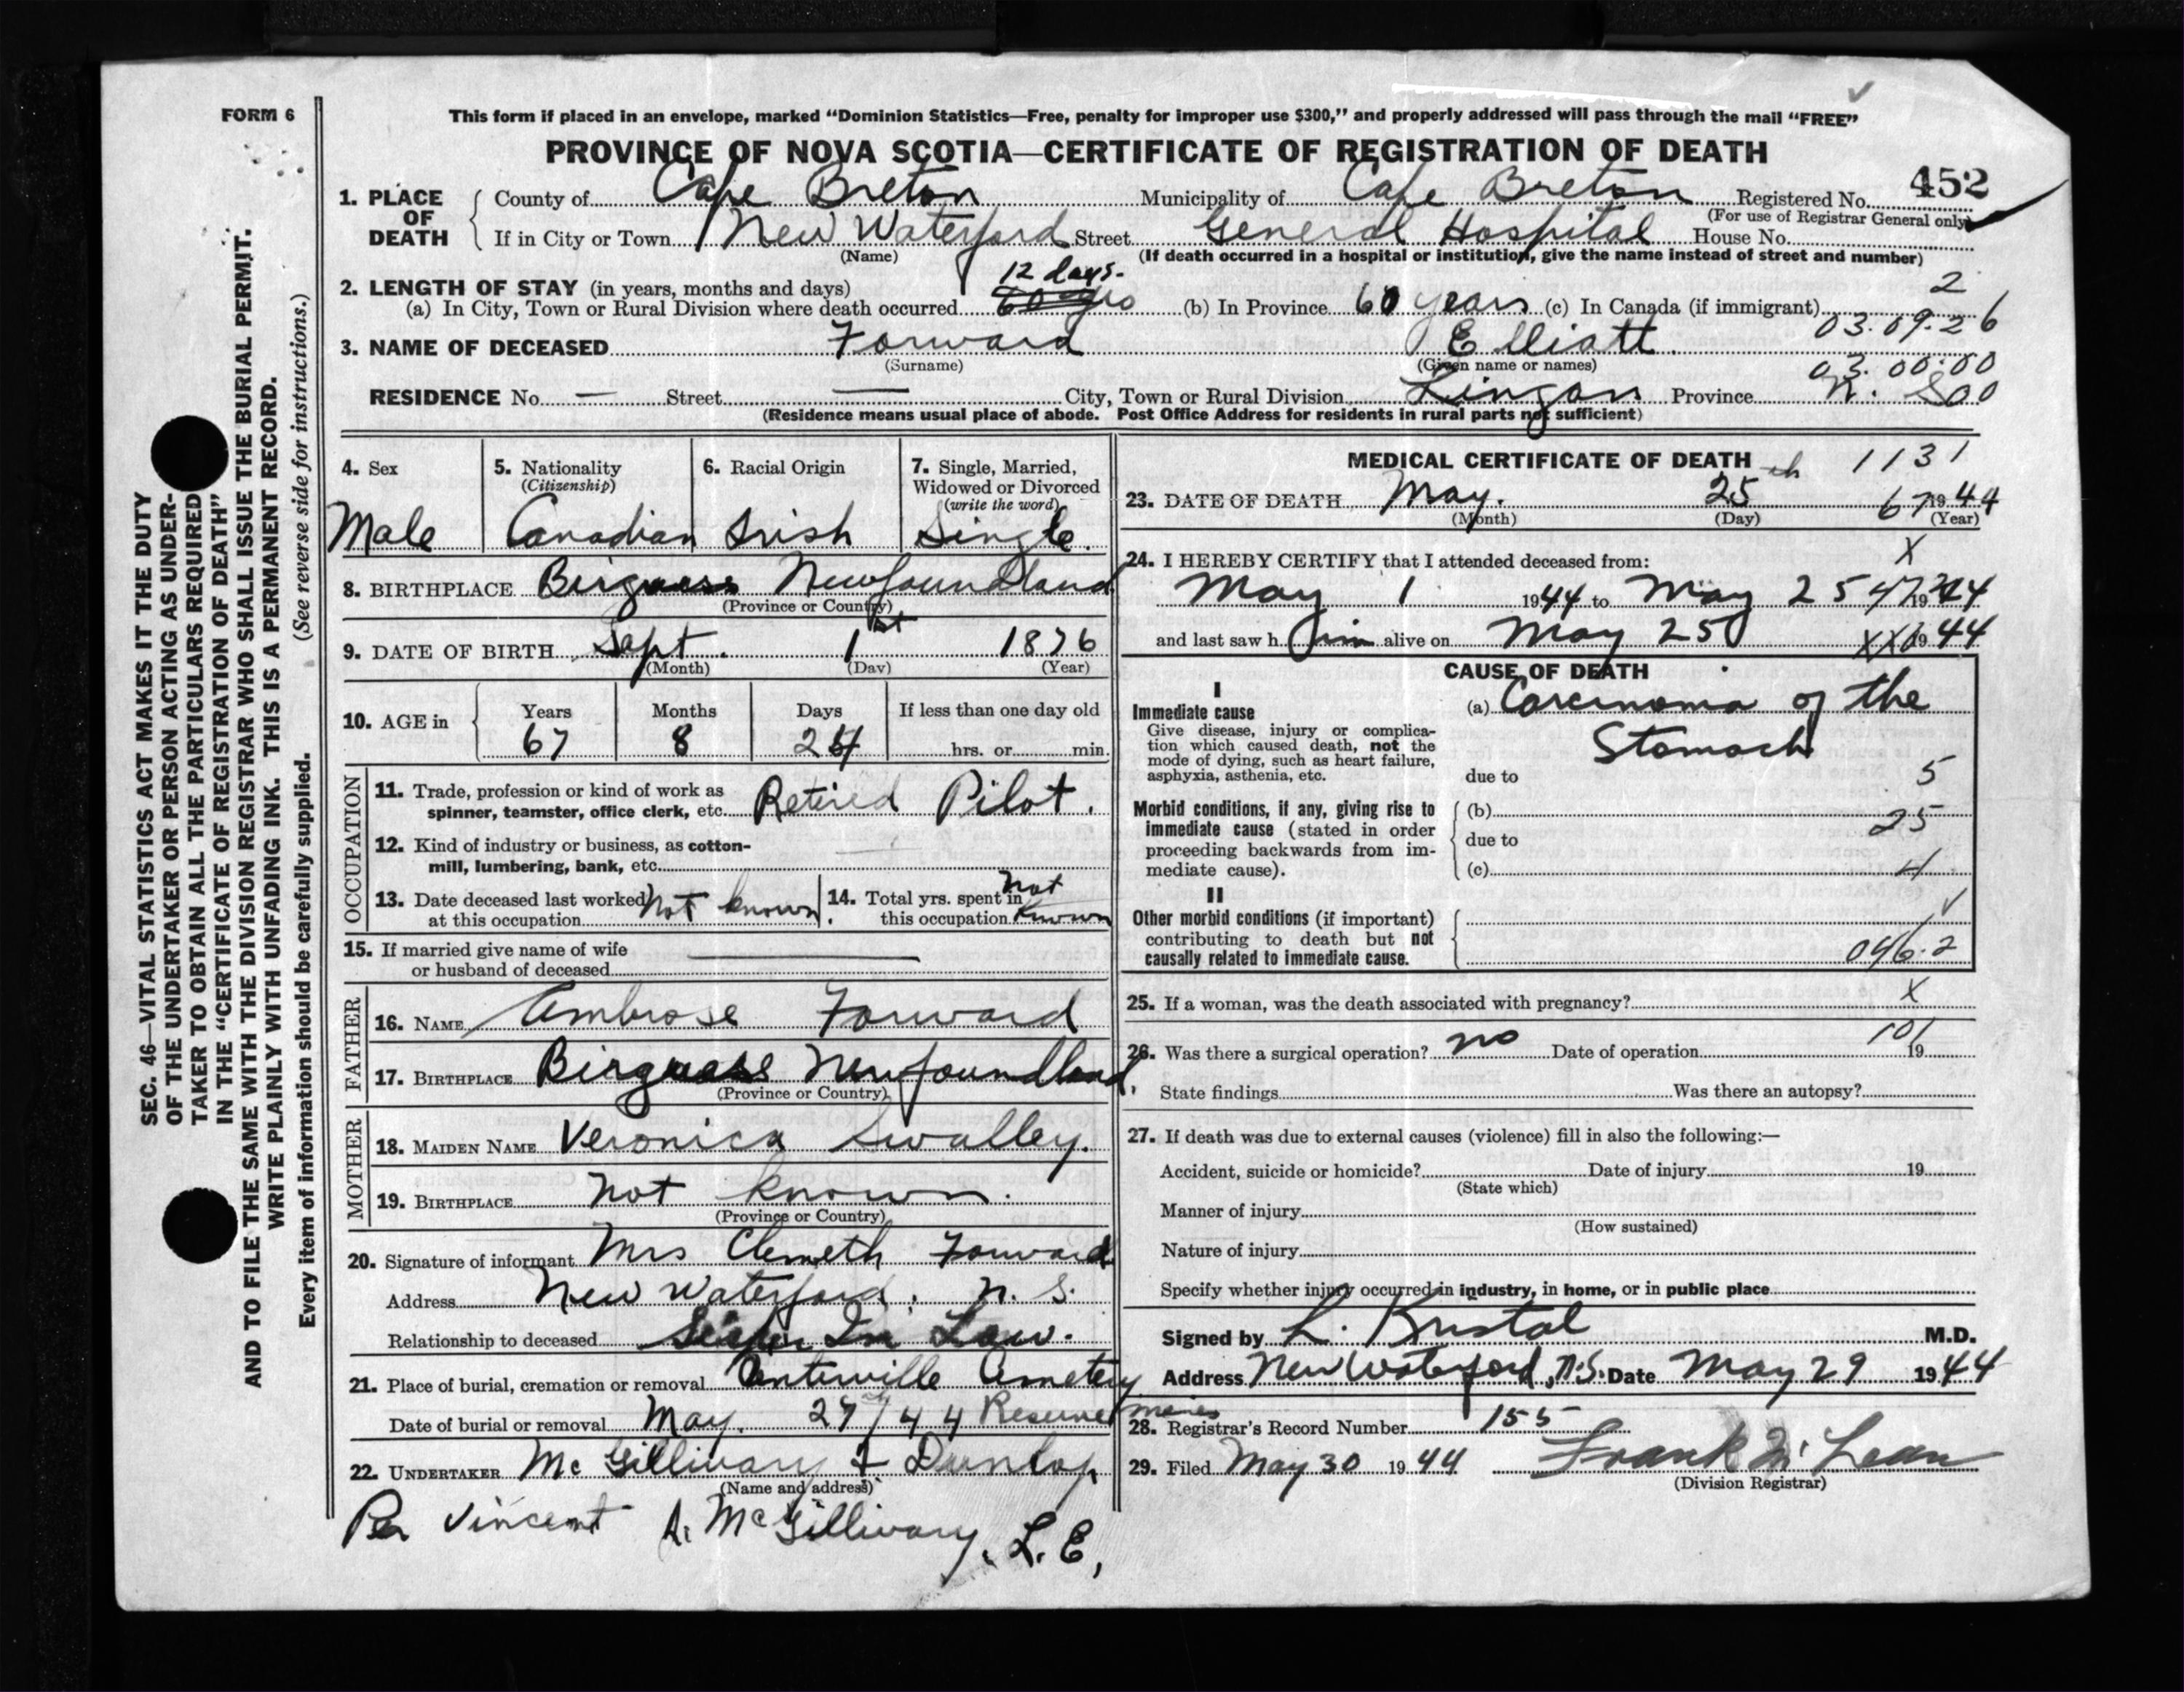 FORM 6
This form if placed in an envelope, marked “Dominion Statistics—Free, penalty for improper use $300,” and properly addressed will pass through the mail “FREE”
PROVINCE OF NOVA SCOTIA—CERTIFICATE OF REGISTRATION OF DEATH
452
1. PLACE OF DEATH County of Cape Breton Municipality of Cape Breton Registered No.
(For use of Registrar General only)
If in City or Town New Waterford Street General Hospital House No.
(Name) (If death occurred in a hospital or institution, give the name instead of street and number)
12 days.
2. LENGTH OF STAY (in years, months and days) 2
(a) In City, Town or Rural Division where death occurred (b) In Province 60 years (c) In Canada (if immigrant)
03.09.26
3. NAME OF DECEASED Forward Elliott.
(Surname) (Given name or names) 03.00.00
RESIDENCE No. — Street — City, Town or Rural Division Lingan Province N. S 00
(Residence means usual place of abode. Post Office Address for residents in rural parts not sufficient)
4. Sex 5. Nationality (Citizenship) 6. Racial Origin 7. Single, Married, Widowed or Divorced (write the word)
Male Canadian Irish Single.
8. BIRTHPLACE Newfoundland
(Province or Country)
9. DATE OF BIRTH Sept. 1st 1876
(Month) (Day) (Year)
10. AGE in Years Months Days If less than one day old
67 8 24 hrs. or min.
OCCUPATION
11. Trade, profession or kind of work as spinner, teamster, office clerk, etc. Retired Pilot.
12. Kind of industry or business, as cotton-mill, lumbering, bank, etc.
13. Date deceased last worked at this occupation Not known.
14. Total yrs. spent in this occupation Not known
15. If married give name of wife or husband of deceased —
FATHER
16. NAME Ambrose Forward
17. BIRTHPLACE Newfoundland.
(Province or Country)
MOTHER
18. MAIDEN NAME Veronica Swalley.
19. BIRTHPLACE Not known.
(Province or Country)
20. Signature of informant Mrs Clemeth Forward
Address New Waterford. N. S.
Relationship to deceased Sister In Law.
21. Place of burial, cremation or removal Centerville Cemetery
Date of burial or removal May. 27/44 Reserve Mines
22. UNDERTAKER McGillivary & Dunlop
(Name and address)
Per Vincent A. McGillivary, L.E,
MEDICAL CERTIFICATE OF DEATH 1131
23. DATE OF DEATH May. 25th 67 1944
(Month) (Day) (Year)
24. I HEREBY CERTIFY that I attended deceased from: X
May 1 1944 to May 25 1944
and last saw him alive on May 25 1944
CAUSE OF DEATH
I
Immediate cause (a) Carcinoma of the Stomach
Give disease, injury or complication which caused death, not the mode of dying, such as heart failure, asphyxia, asthenia, etc.
due to 5
Morbid conditions, if any, giving rise to immediate cause (stated in order proceeding backwards from immediate cause).
(b)
due to 25
(c) 4
II
Other morbid conditions (if important) contributing to death but not causally related to immediate cause.
046.2
25. If a woman, was the death associated with pregnancy? X
26. Was there a surgical operation? no Date of operation 19
101
State findings Was there an autopsy?
27. If death was due to external causes (violence) fill in also the following:—
Accident, suicide or homicide? Date of injury 19
(State which)
Manner of injury
(How sustained)
Nature of injury
Specify whether injury occurred in industry, in home, or in public place
Signed by L. Kristal M.D.
Address New Waterford, N.S. Date May 29 1944
28. Registrar's Record Number 155
29. Filed May 30 1944 Frank McLean
(Division Registrar)
SEC. 46—VITAL STATISTICS ACT MAKES IT THE DUTY
OF THE UNDERTAKER OR PERSON ACTING AS UNDER-
TAKER TO OBTAIN ALL THE PARTICULARS REQUIRED
IN THE “CERTIFICATE OF REGISTRATION OF DEATH”
AND TO FILE THE SAME WITH THE DIVISION REGISTRAR WHO SHALL ISSUE THE BURIAL PERMIT.
WRITE PLAINLY WITH UNFADING INK. THIS IS A PERMANENT RECORD.
Every item of information should be carefully supplied. (See reverse side for instructions.)